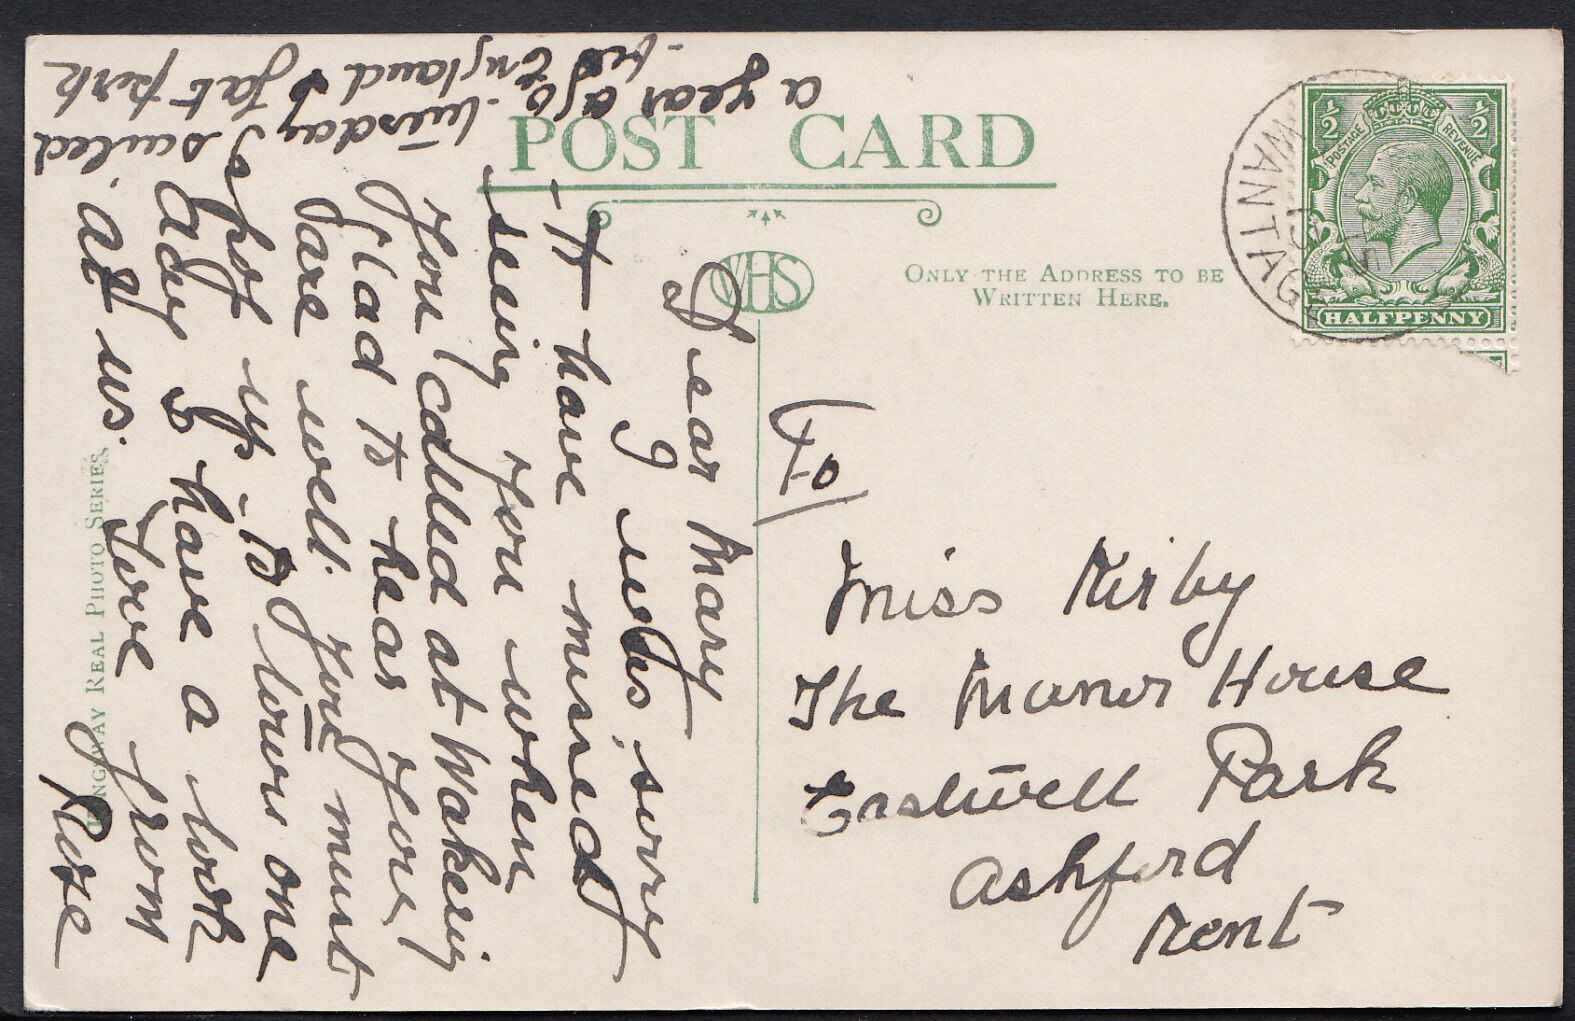 POST CARD
WHS
ONLY THE ADDRESS TO BE
WRITTEN HERE.
KINGSWAY REAL PHOTO SERIES
WANTAGE
½ ½
POSTAGE REVENUE
HALFPENNY
To
Miss Kirby
The Manor House
Eastwell Park
Ashford
Kent
Dear Mary
I was sorry
to have missed
seeing you when
you called at Wakering
glad to hear you
are well. you must
shof up to town one
day & have a look
at us. Love from
Rose
a year ago
Tuesday I sailed
England &